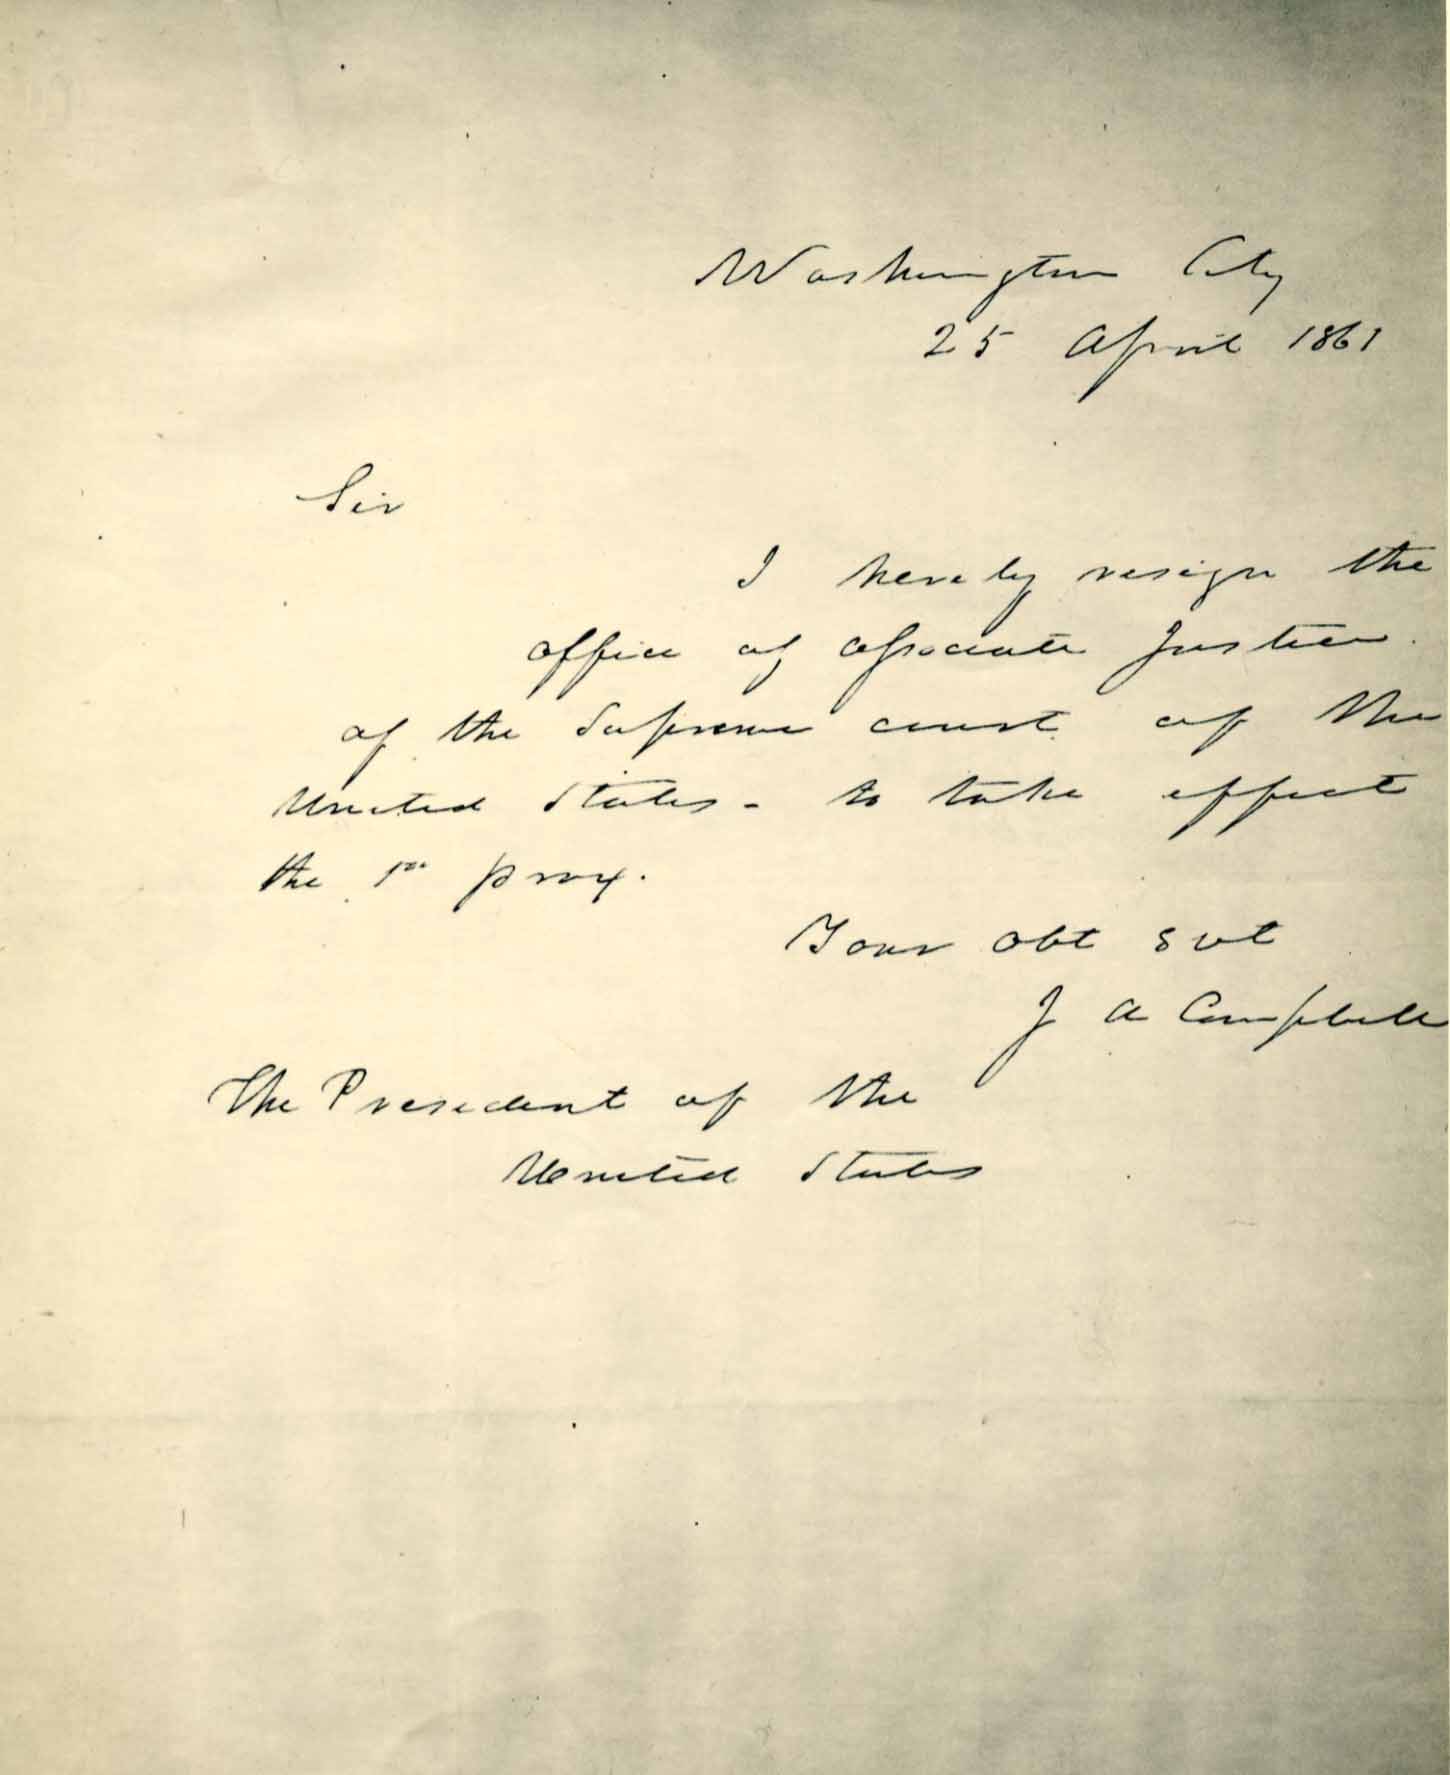 Washington City
25 April 1861
Sir
I hereby resign the
office of associate Justice
of the Supreme court of the
United States - to take effect
the 1st prox.
Your obt svt
J A Campbell
The President of the
United States